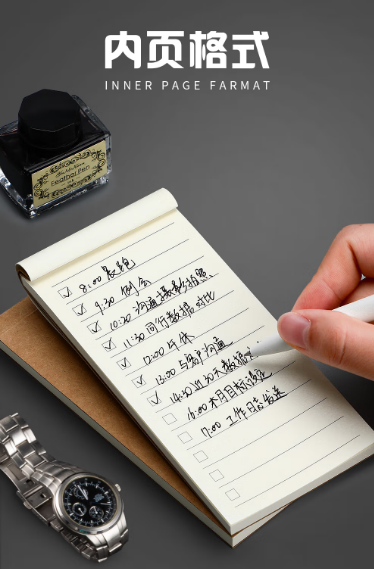 内页格式
INNER PAGE FARMAT
Feather Pen
8:00 晨跑
9:30 例会
10:30 沟通摄影
11:30 同行数据对比
12:00 午休
13:00 与客户沟通
14:30 数据
16:00 本月目标
17:00 工作日志发送